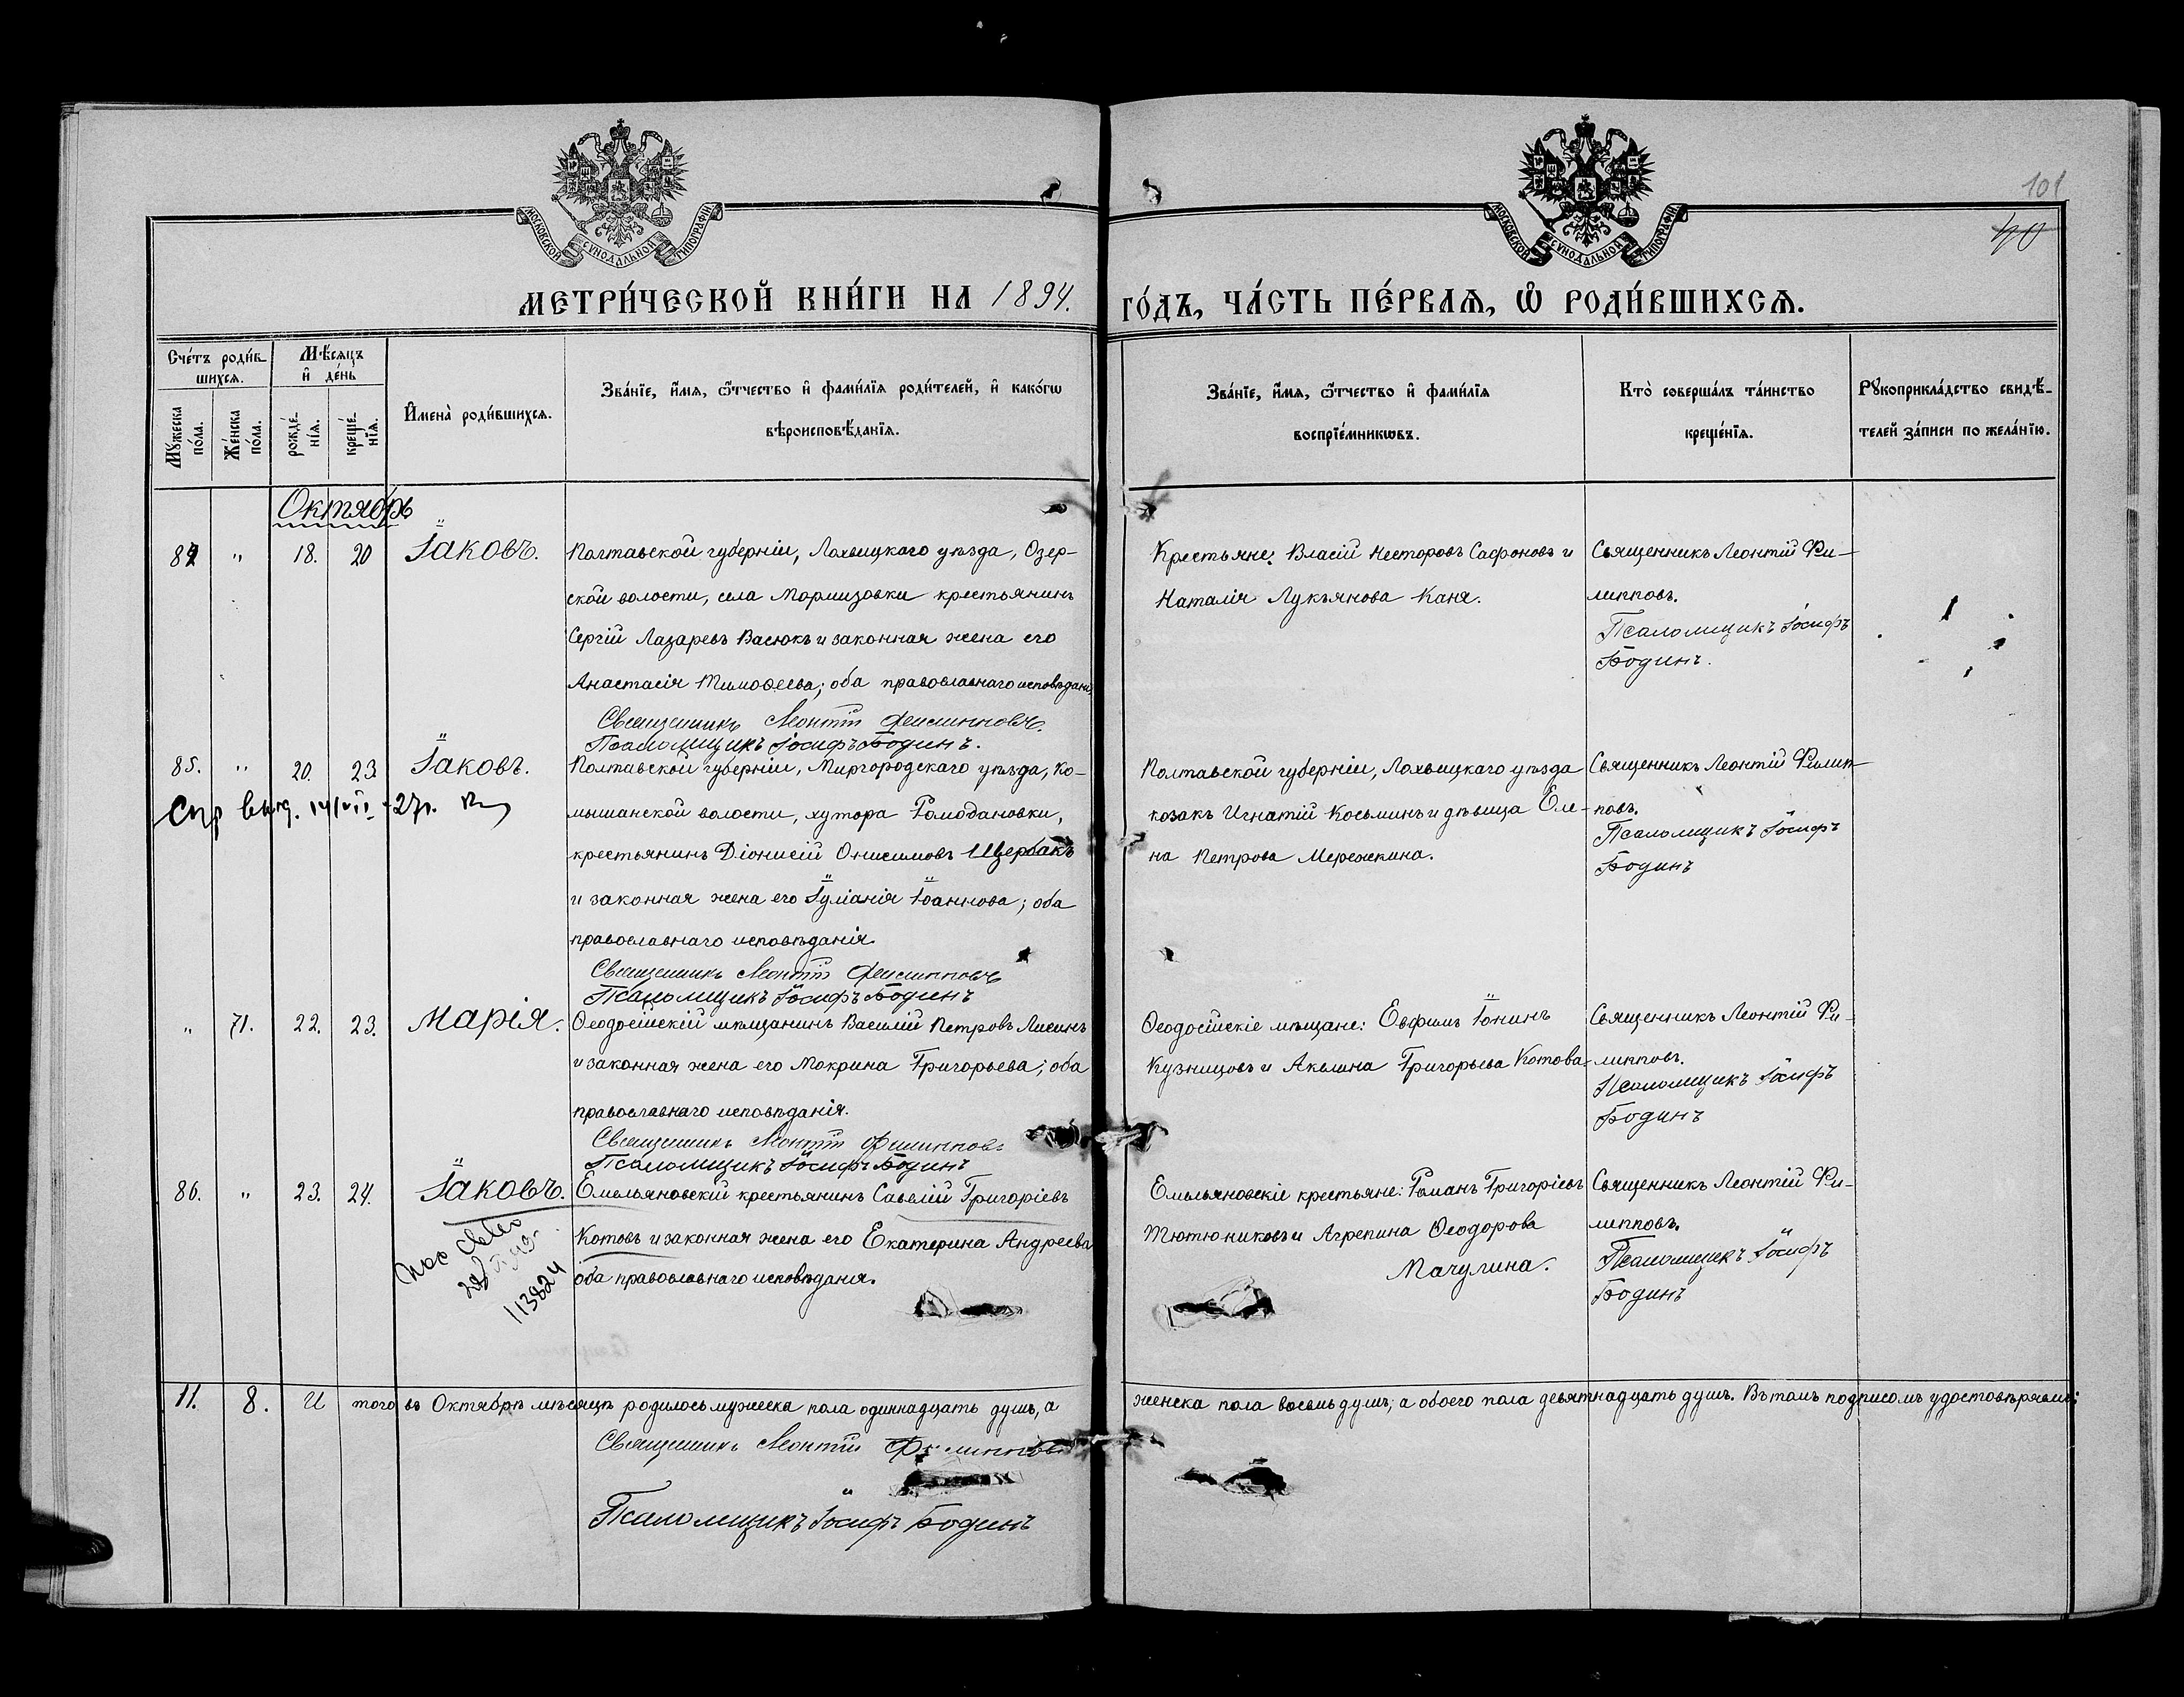 101
40
МОСКОВСКОЙ СУНОДАЛЬНОЙ ТИПОГРАФІИ
МОСКОВСКОЙ СУНОДАЛЬНОЙ ТИПОГРАФІИ
МЕТРИ́ЧЕСКОЙ КНИ́ГИ НА 1894. ГО́ДЪ, ЧА́СТЬ ПЕ́РВАѦ, Ѡ҆ РОДИ́ВШИХСѦ.
Сче́тъ роди́вшихсѧ.
Мꙋ́жеска по́ла.
Же́нска по́ла.
Мѣ́сѧцъ и҆ де́нь
рожде́нїѧ.
креще́нїѧ.
И҆мена̀ роди́вшихсѧ.
Зва́нїе, и҆́мѧ, ѻ҆́тчество и҆ фами́лїѧ роди́телей, и҆ како́гѡ
вѣроисповѣ́данїѧ.
Зва́нїе, и҆́мѧ, ѻ҆́тчество и҆ фами́лїѧ
воспрїе́мникѡвъ.
Кто̀ соверша́лъ та́инство
креще́нїѧ.
Рꙋкоприкла́дство свидѣ́-
телей за́писи по жела́нїю.
Октябрь
84 " 18. 20 Іаковъ.
Полтавской губерніи, Лохвицкаго уѣзда, Озер-
ской волости, села Мормизовки крестьянинъ
Сергій Лазаревъ Васюкъ и законная жена его
Анастасія Тимоѳеева; оба православнаго исповѣданія
Священникъ Леонтій Филипповъ.
Псаломщикъ Іосифъ Бодинъ.
Крестьяне: Власій Несторовъ Сафоновъ и
Наталія Лукьянова Каня.
Священникъ Леонтій Фи-
липповъ.
Псаломщикъ Іосифъ
Бодинъ.
85. " 20. 23 Іаковъ.
Спр выд.
27г.
Полтавской губерніи, Миргородскаго уѣзда, Ко-
мышанской волости, хутора Ромодановки,
крестьянинъ Діонисій Онисимовъ Щербакъ
и законная жена его Іуліанія Іоаннова; оба
православнаго исповѣданія.
Священникъ Леонтій Филипповъ
Псаломщикъ Іосифъ Бодинъ
Полтавской губерніи, Лохвицкаго уѣзда
козакъ Игнатій Косьминъ и дѣвица Еле-
на Петрова Мережкина.
Священникъ Леонтій Филип-
повъ.
Псаломщикъ Іосифъ
Бодинъ
" 71. 22. 23. Марія.
Ѳеодосійскій мѣщанинъ Василій Петровъ Лисинъ
и законная жена его Мокрина Григорьева; оба
православнаго исповѣданія.
Священникъ Леонтій Филипповъ
Псаломщикъ Іосифъ Бодинъ
Ѳеодосійскіе мѣщане: Евфимъ Іонинъ
Кузницовъ и Акилина Григорьева Котова
Священникъ Леонтій Фи-
липповъ.
Псаломщикъ Іосифъ
Бодинъ
86. " 23. 24. Іаковъ.
113824
Емельяновскій крестьянинъ Савелій Григоріевъ
Котовъ и законная жена его Екатерина Андреева
оба православнаго исповѣданія.
Емельяновскіе крестьяне: Романъ Григоріевъ
Тютюниковъ и Агрепина Ѳеодорова
Мачулина.
Священникъ Леонтій Фи-
липповъ.
Псаломщикъ Іосифъ
Бодинъ
11. 8. И того въ Октябрѣ мѣсяцѣ родилось мужеска пола одиннадцать душъ, а женска пола восемь душъ, а обоего пола девятнадцать душъ. Въ томъ подписомъ удостовѣряемъ:
Священникъ Леонтій Филипповъ
Псаломщикъ Іосифъ Бодинъ